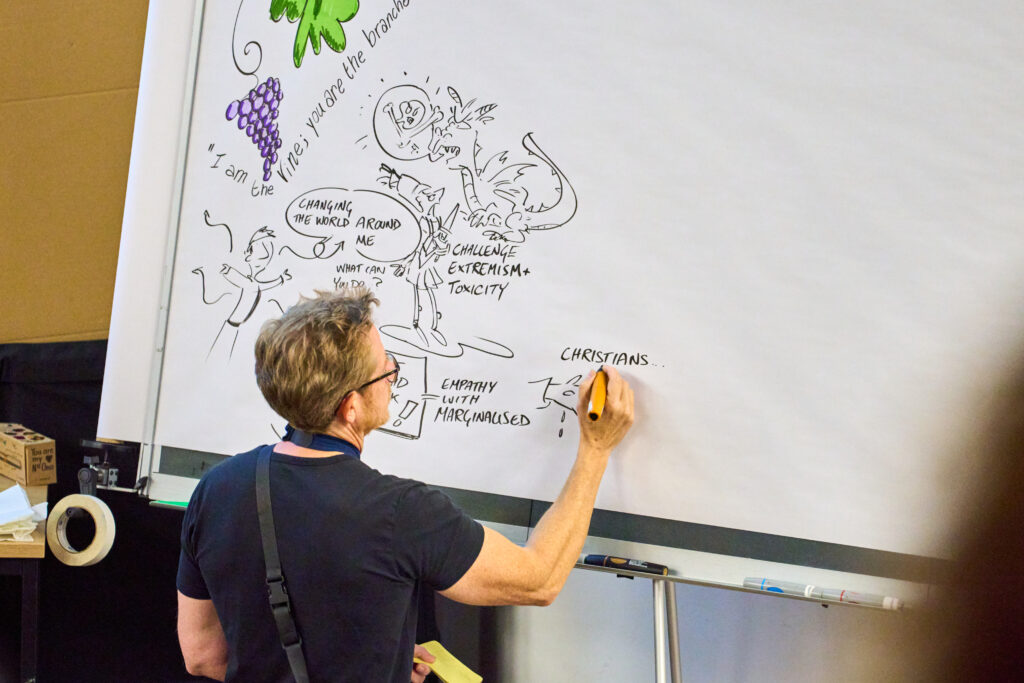 "I am the vine; you are the branche
CHANGING
THE WORLD AROUND
ME
WHAT CAN
YOU DO ?
CHALLENGE
EXTREMISM +
TOXICITY
CHRISTIANS...
= EMPATHY
WITH
MARGINALISED
You are
my ♥
Nº One